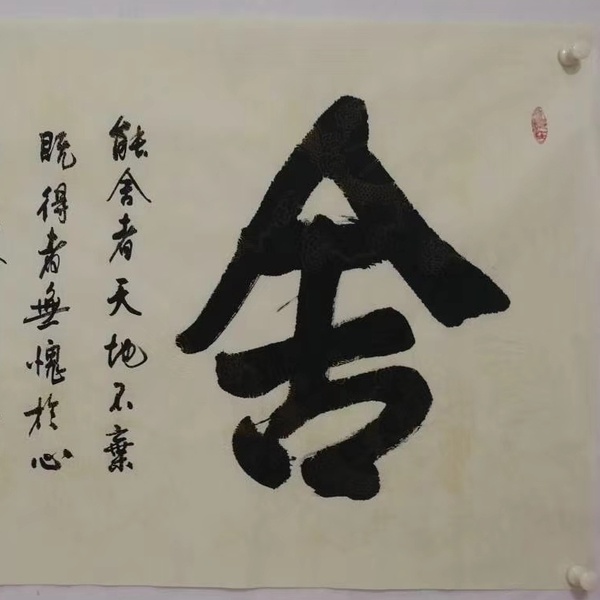 舍
能舍者天地不棄
既得者無愧於心